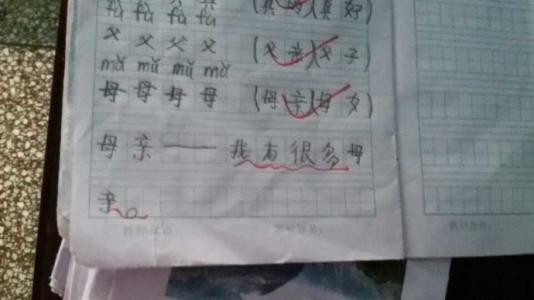 fù fù fù fù (真的)(真好)
父 父 父 父 (父亲)(父子)
mǔ mǔ mǔ mǔ
母 母 母 母 (母亲)(母女)
母亲——我有很多母
亲。